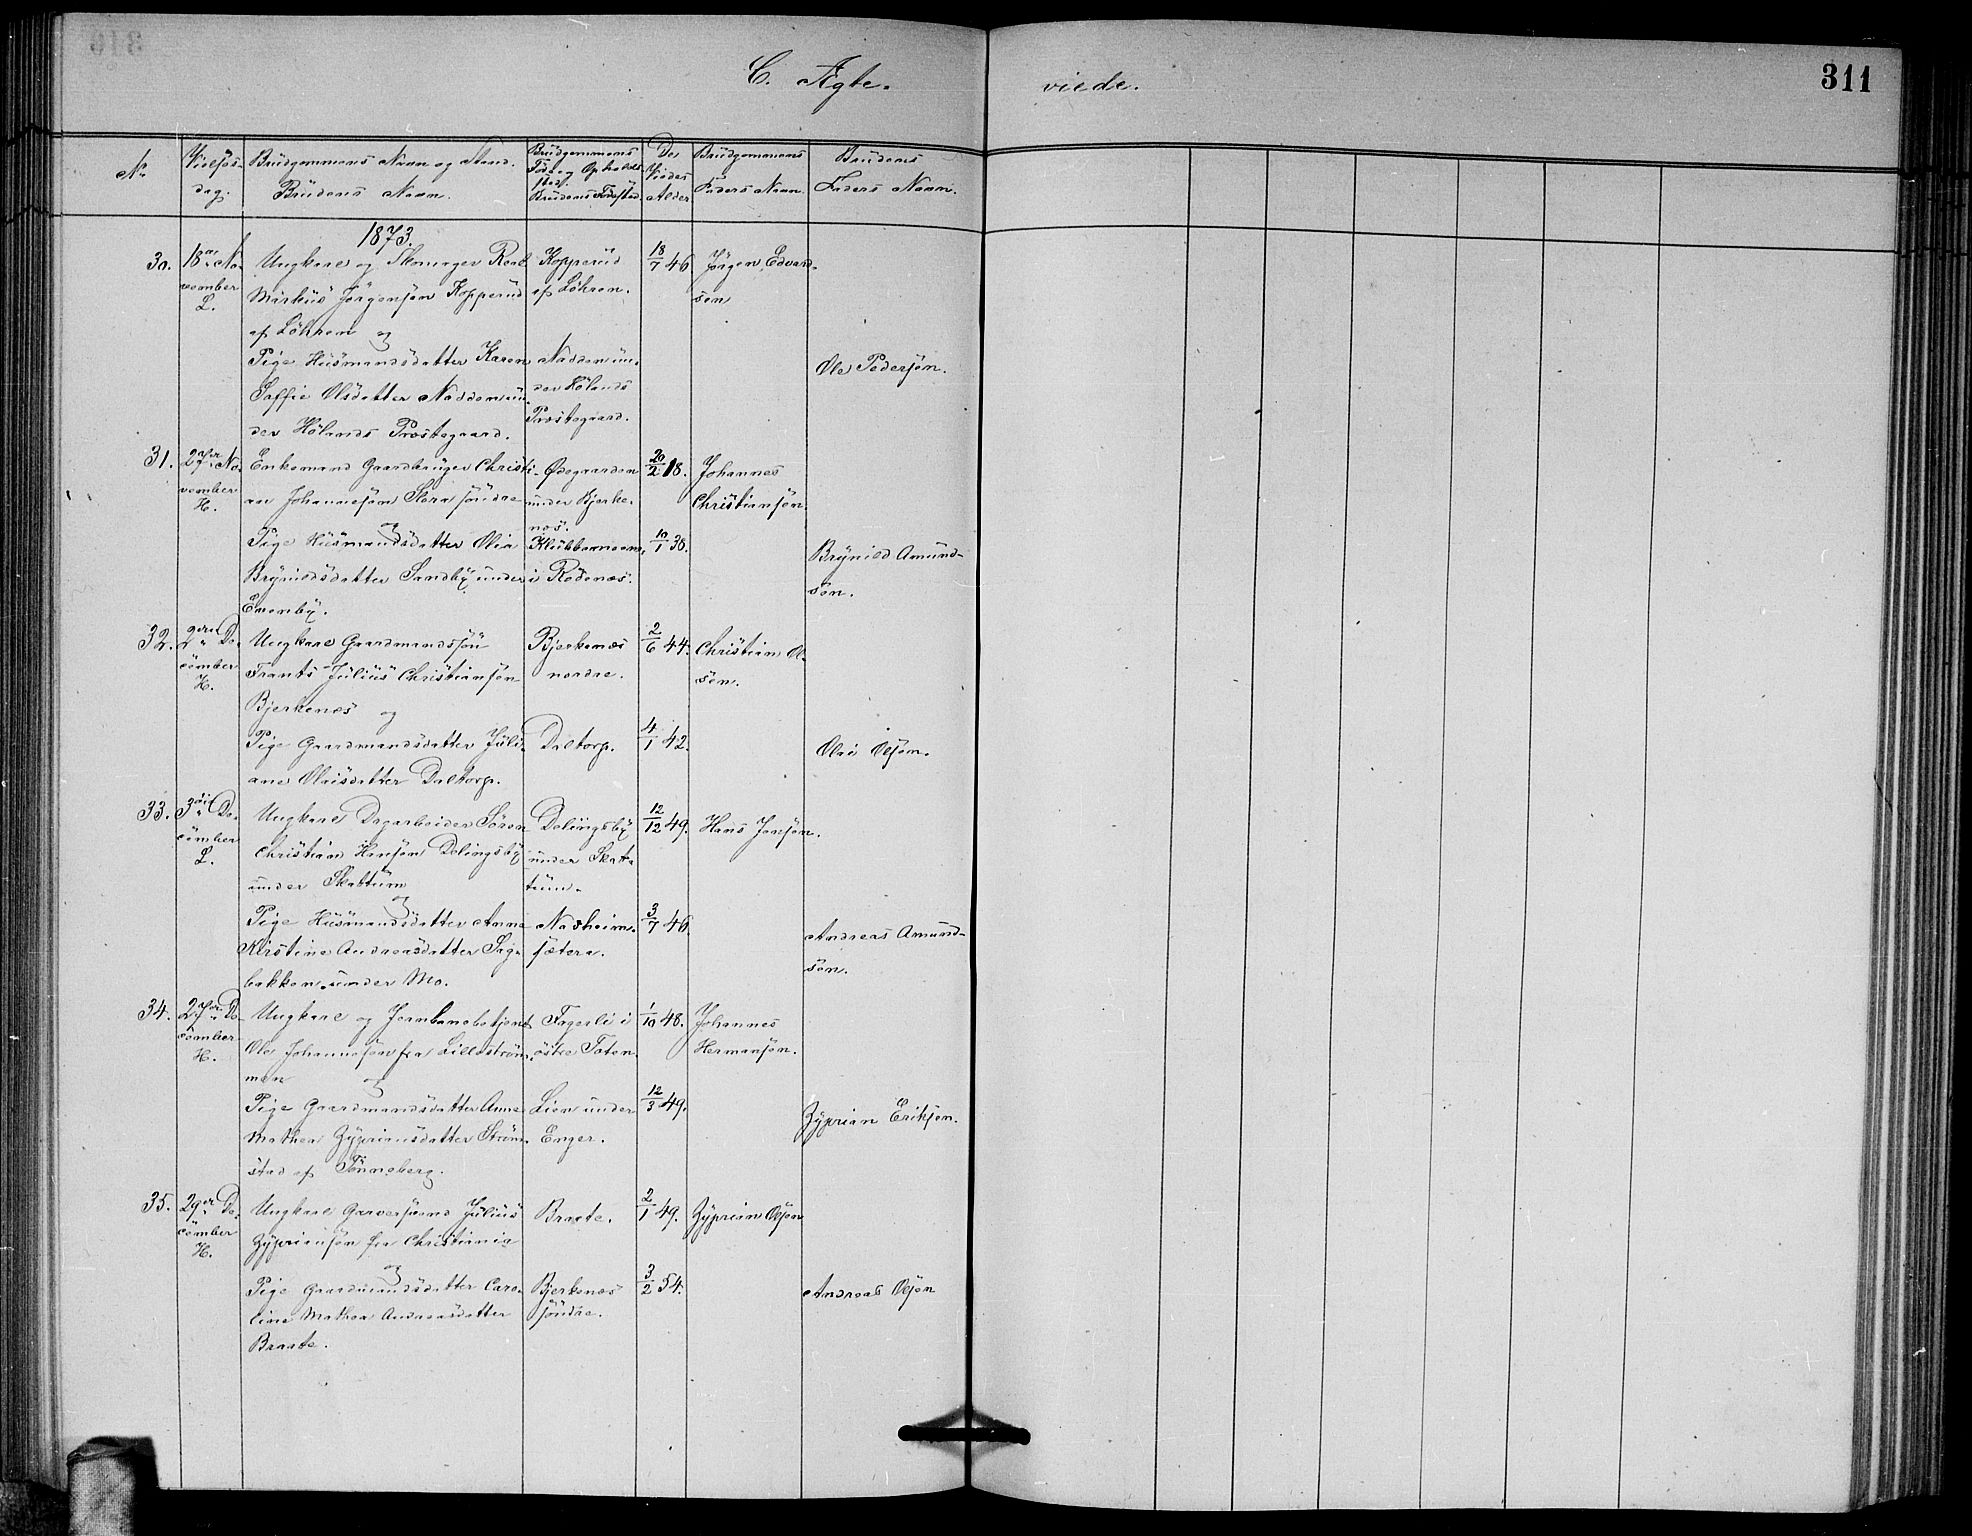 C. Ægte.
viede.
311
Nr
Vielses-
dag.
Brudgommens Navn og Stand.
Brudens Navn.
Brudgommens
Føde og Opholds
sted.
Brudens Fødested
De
Viedes
Alder
Brudgommens
Faders Navn.
Brudens
Faders Navn.
1873.
30.
18de No-
vember
L.
Ungkarl og Skomager Roal
Markus Jörgensøn Kopperud
af Löhren og
Pige Husmandsdatter Karen
Soffie Olsdatter Nadden un-
der Hölands Præstegaard.
Kopperud
af Löhren.
Nadden un-
der Hölands
Præstegaard.
18/7 46
Jörgen Edvard-
søn
Ole Pedersøn.
31.
27de No-
vember
H.
Enkemand Gaardbruger Christi-
an Johannesøn Slora søndre
og
Pige Husmandsdatter Olia
Brynildsdatter Sandby under
Evenby.
Ødegaarden
under Bjerke-
nes.
Klukkernæm
i Rödenæs.
20/2 18.
10/1 38.
Johannes
Christiansøn.
Brynild Amund-
søn.
32.
2den De-
cember
H.
Ungkarl Gaardmandssøn
Frants Julius Christiansøn
Bjerkenæs og
op.
Pige Gaardmandsdatter Juli-
ane Olaisdatter Daltorp.
Bjerkenæs
nordre.
Daltorp.
2/6 44.
4/1 42.
Christian Ol-
søn.
Olai Olsøn.
33.
3die De-
cember
L.
Ungkarl Dagarbeider Sören
Christian Hansøn Delingsby
under Skattum
og
Pige Husmandsdatter Anne
Kirstine Andreasdatter Sag-
bakken under Mo.
Delingsby
under Skat-
tum.
Nasheim-
sætern.
12/12 49.
3/7 46
Hans Jensøn.
Andreas Amund-
søn.
34.
27de De-
cember
H.
Ungkarl og Jernbanebetjent
Ole Johannesøn fra Lilleström-
men og
Pige Gaardmandsdatter Anne
Mathea Zypriansdatter Ström-
stad af Tönneberg.
Fagerli i
östre Toten
Lien under
Enger.
1/10 48.
12/3 49.
Johannes
Hermansøn.
Zyprian Eriksøn.
35.
29de De-
cember
H.
Ungkarl Garversvend Julius
Zypriansøn fra Christiania
og
Pige Gaardmandsdatter Caro-
line Mathea Andreasdatter
Braate.
Braate.
Bjerkenæs
søndre.
2/1 49.
3/2 54.
Zyprian Olsøn
Andreas Olsøn